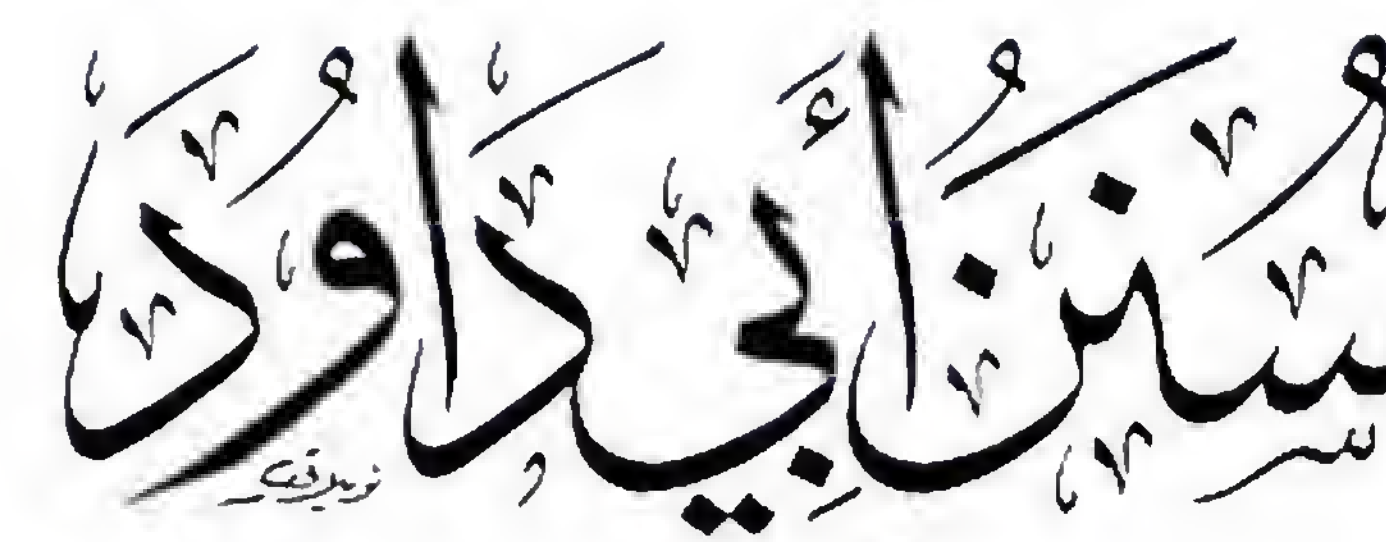 سُنَنُ أَبِي دَاوُدَ